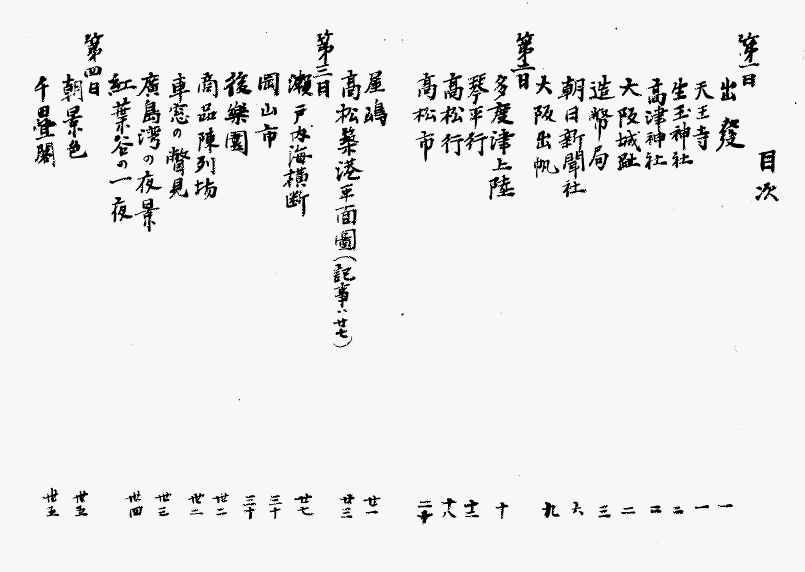 目次
第一日
出發 一
天王寺 一
生玉神社 二
高津神社 二
大阪城趾 二
造幣局 三
朝日新聞社 六
大阪出帆 九
第二日
多度津上陸 十
琴平行 十二
高松行 十八
高松市 二十
屋嶋 廿一
高松築港平面圖(記事ハ廿七) 廿三
第三日
瀬戸内海横断 廿七
岡山市 三十
後樂園 三十
商品陳列場 卅二
車窓の瞥見 卅二
廣島湾の夜景 卅三
紅葉谷の一夜 卅四
第四日
朝景色 卅五
千畳閣 卅五